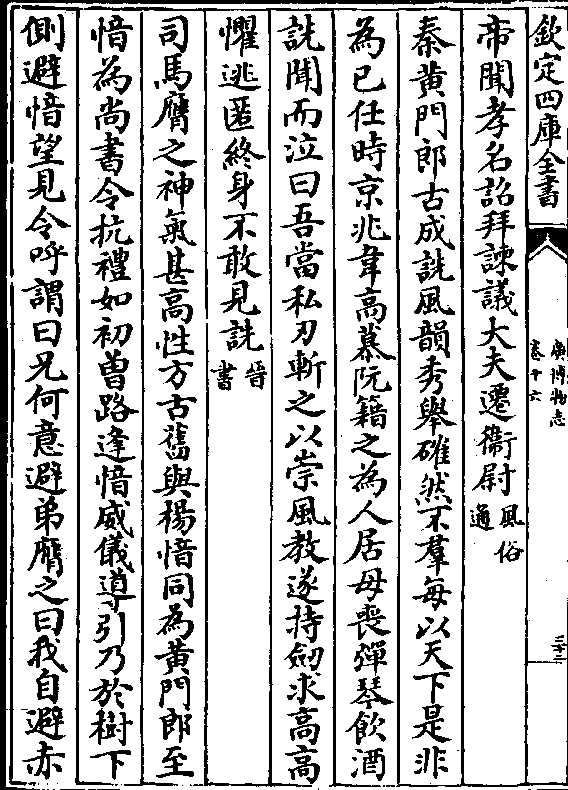 欽定四庫全書
廣博物志
卷十六
三十二
帝聞孝名詔拜諫議大夫遷衞尉風俗通
秦黄門郎古成詵風韻秀舉確然不羣每以天下是非
為已任時京兆韋高慕阮籍之為人居母喪彈琴飲酒
詵聞而泣曰吾當私刃斬之以崇風教遂持劒求高高
懼逃匿終身不敢見詵晉書
司馬膺之神氣甚高性方古舊與楊愔同為黄門郎至
愔為尚書令抗禮如初曽路逢愔威儀導引乃於樹下
側避愔望見令呼謂曰兄何意避弟膺之曰我自避赤